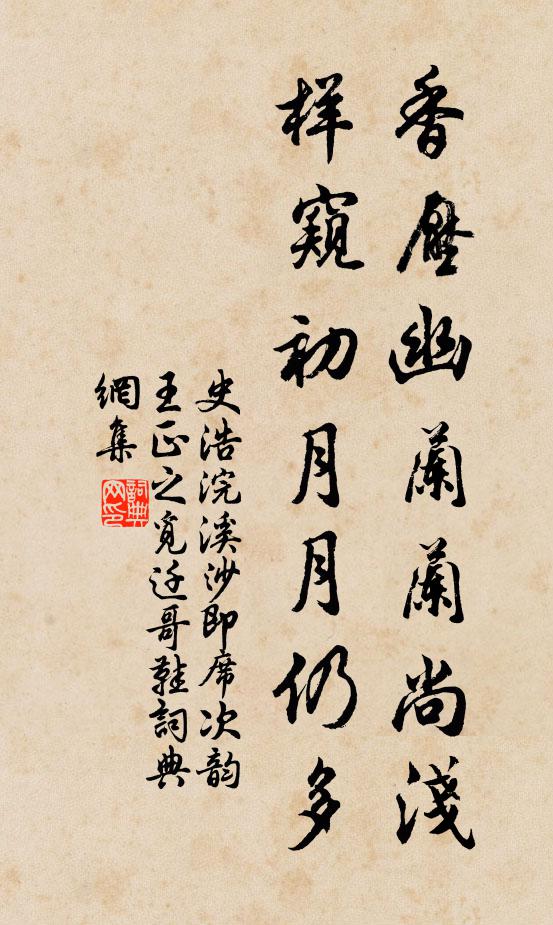 香壓幽蘭蘭尚淺
樣窺初月月仍多
史浩浣溪沙即席次韵
王正之覓迁哥鞋詞典
網集
詞典
网印